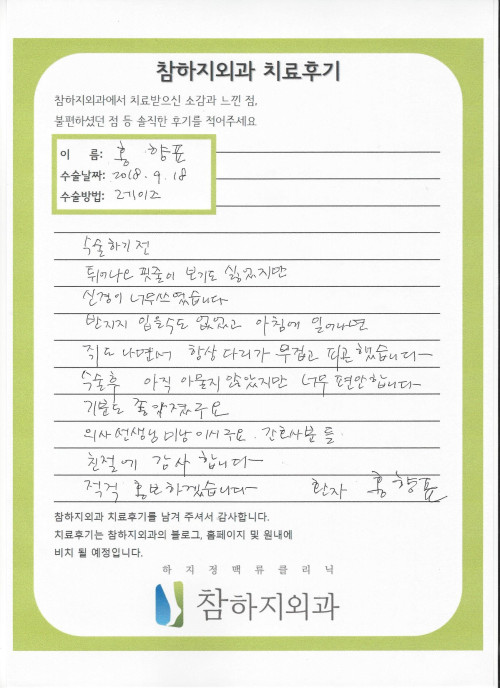 참하지외과 치료후기
참하지외과에서 치료받으신 소감과 느낀 점,
불편하셨던 점 등 솔직한 후기를 적어주세요
이 름: 홍 향표
수술날짜: 2018. 9. 18
수술방법: 레이즈
수술하기전
튀어나온 핏줄이 보기도 싫었지만
신경이 너무쓰였습니다
반지지 입을수도 없었고 아침에 일어나면
쥐도 나면서 항상 다리가 무겁고 피곤했습니다
수술후 아직 아물지 않았지만 너무 편안합니다
기분도 좋아졌구요
의사선생님 미남이시구요. 간호사분들
친절에 감사합니다
적극 홍보하겠습니다 환자 홍향표
참하지외과 치료후기를 남겨 주셔서 감사합니다.
치료후기는 참하지외과의 블로그, 홈페이지 및 원내에
비치 될 예정입니다.
하지정맥류클리닉
참하지외과